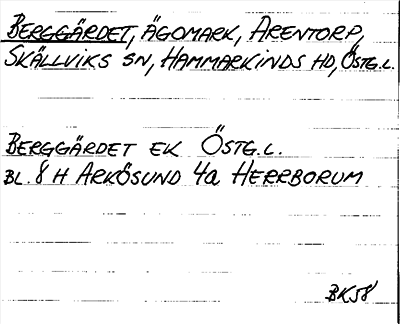 BERGGÄRDET, ÄGOMARK, ARENTORP,
SKÄLLVIKS SN, HAMMARKINDS HD, ÖSTG.L.
BERGGÄRDET EK ÖSTG.L.
BL. 8 H ARKÖSUND 4a HERRBORUM
BK58